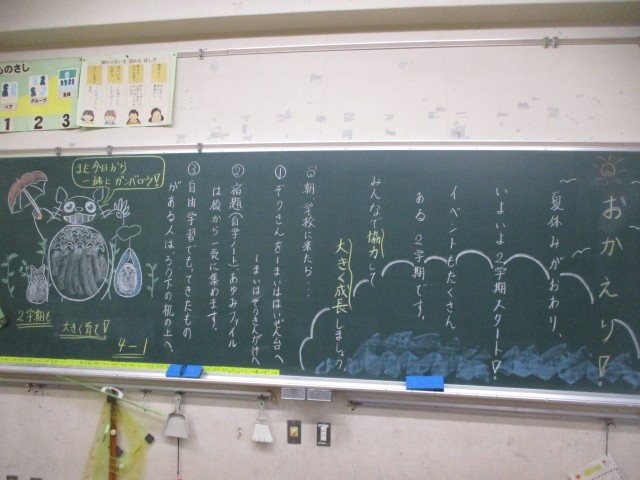 おかえり!
夏休みがおわり、
いよいよ2学期スタート!
イベントもたくさん
ある2学期です。
みんなで協力して
大きく成長しましょう
朝学校に来たら…
① ぞうきんを1まいはいぜん台へ
1まいはぞうきんがけへ
② 宿題(自学ノート)あゆみファイル
は後から一気に集めます。
③ 自由学習でもってきたもの
がある人はろう下の机の上へ
また今日から
一緒にガンバロー!
2学期も
大きく育て!
4-1
ものさし
ペア
グループ
全体
1 2 3